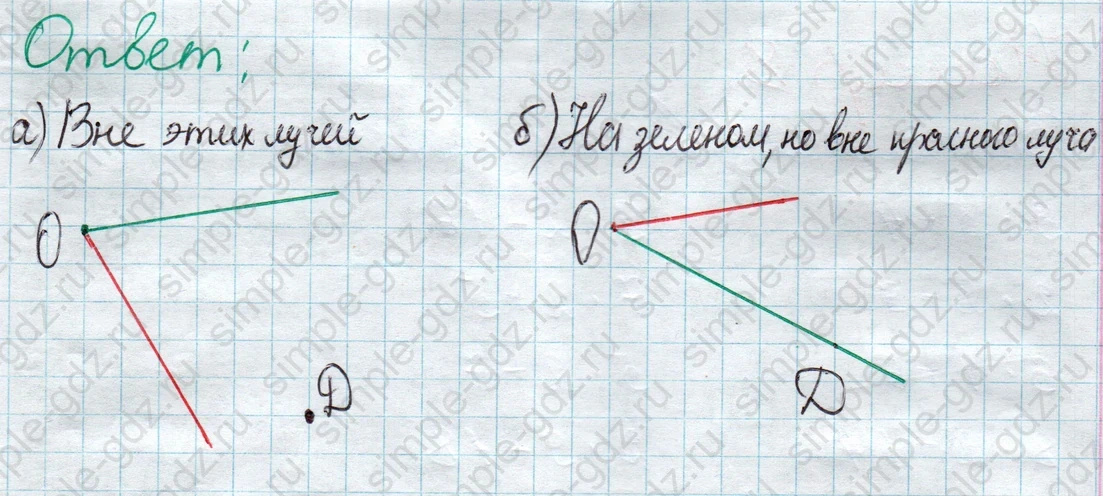 Ответ:
а) Вне этих лучей
б) На зеленом, но вне красного луча
О
О
Д
Д
simple-gdz.ru